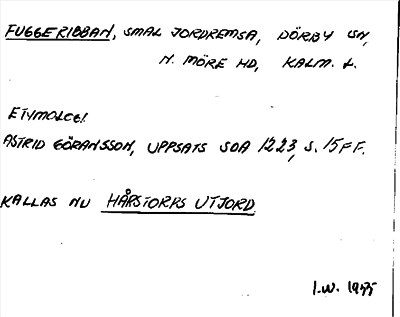 FUGGERIBBAN, SMAL JORDREMSA, DÖRBY SN,
N. MÖRE HD, KALM. L.
ETYMOLOGI
ASTRID GÖRANSSON, UPPSATS SOA 1223, S. 15 FF.
KALLAS NU HÅRSTORPS UTJORD
I.W. 1955